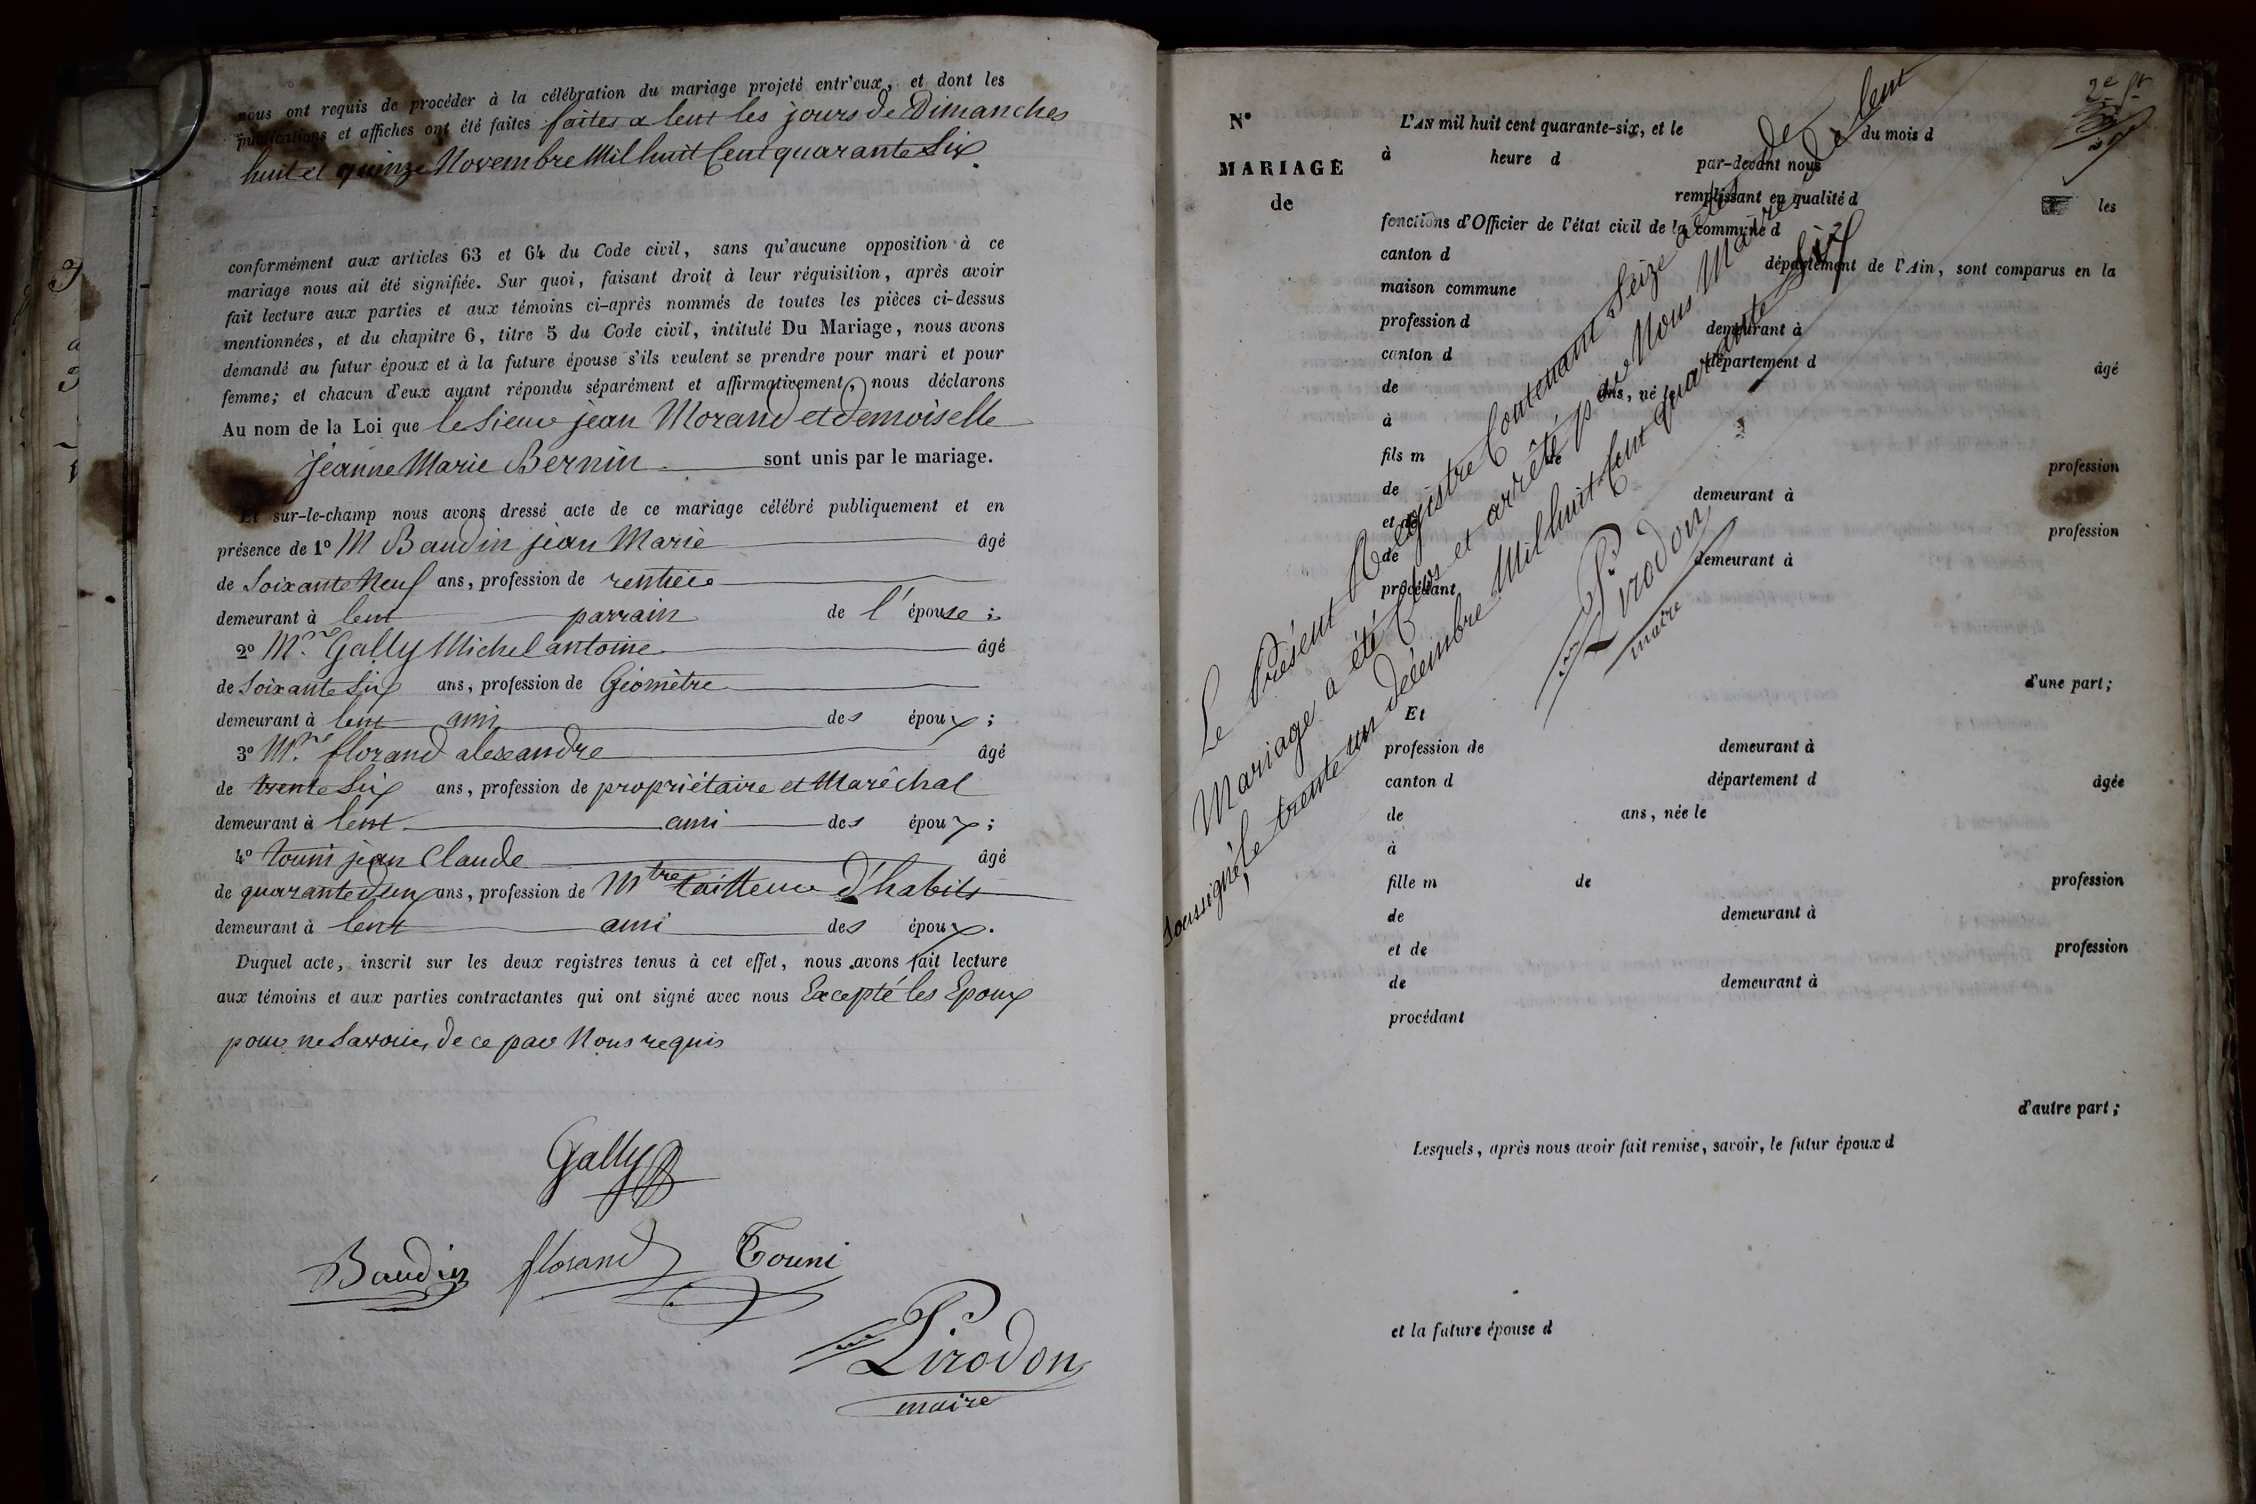 nous ont requis de procéder à la célébration du mariage projeté entr'eux, et dont les
publications et affiches ont été faites faites a lent les jours de Dimanches
huit et quinze Novembre Mil huit Cent quarante Six.
conformément aux articles 63 et 64 du Code civil, sans qu'aucune opposition à ce
mariage nous ait été signifiée. Sur quoi, faisant droit à leur réquisition, après avoir
fait lecture aux parties et aux témoins ci-après nommés de toutes les pièces ci-dessus
mentionnées, et du chapitre 6, titre 5 du Code civil, intitulé Du Mariage, nous avons
demandé au futur époux et à la future épouse s'ils veulent se prendre pour mari et pour
femme; et chacun d'eux ayant répondu séparément et affirmativement, nous déclarons
Au nom de la Loi que le Sieur jean Morand et demoiselle
jeanne Marie Bernin sont unis par le mariage.
Et sur-le-champ nous avons dressé acte de ce mariage célébré publiquement et en
présence de 1º M Baudin jean Marie âgé
de Soixante Neuf ans, profession de rentier
demeurant à lent parrain de l' épouse ;
2º M. Gally Michel antoine âgé
de Soixante Six ans, profession de Géomètre
demeurant à lent ami des époux ;
3º M. florand alexandre âgé
de trente Six ans, profession de propriétaire et Maréchal
demeurant à lent ami des époux ;
4º touni jean Claude âgé
de quarante deux ans, profession de Mtre tailleur d'habits
demeurant à lent ami des époux.
Duquel acte, inscrit sur les deux registres tenus à cet effet, nous avons fait lecture
aux témoins et aux parties contractantes qui ont signé avec nous Excepté les Epoux
pour ne Savoir, de ce par Nous requis
Gally
Baudin florand Touni
Pirodon
maire
2e
Nº
MARIAGE
de
L'AN mil huit cent quarante-six, et le du mois d
à heure d par-devant nous
remplissant en qualité d les
fonctions d'Officier de l'état civil de la commune d
canton d département de l'Ain, sont comparus en la
maison commune
profession d demeurant à
canton d département d âgé
de ans, né le
à
fils m de profession
de demeurant à
et de profession
de demeurant à
procédant
d'une part;
Et
profession de demeurant à
canton d département d âgée
de ans, née le
à
fille m de profession
de demeurant à
et de profession
de demeurant à
procédant
d'autre part;
Lesquels, après nous avoir fait remise, savoir, le futur époux d
et la future épouse d
Le Présent Registre Contenant Seize actes de
Mariage a été Clos et arrêté par Nous Maire de lent
soussigné, le trente un décembre Mil huit Cent quarante Six
Pirodon
maire